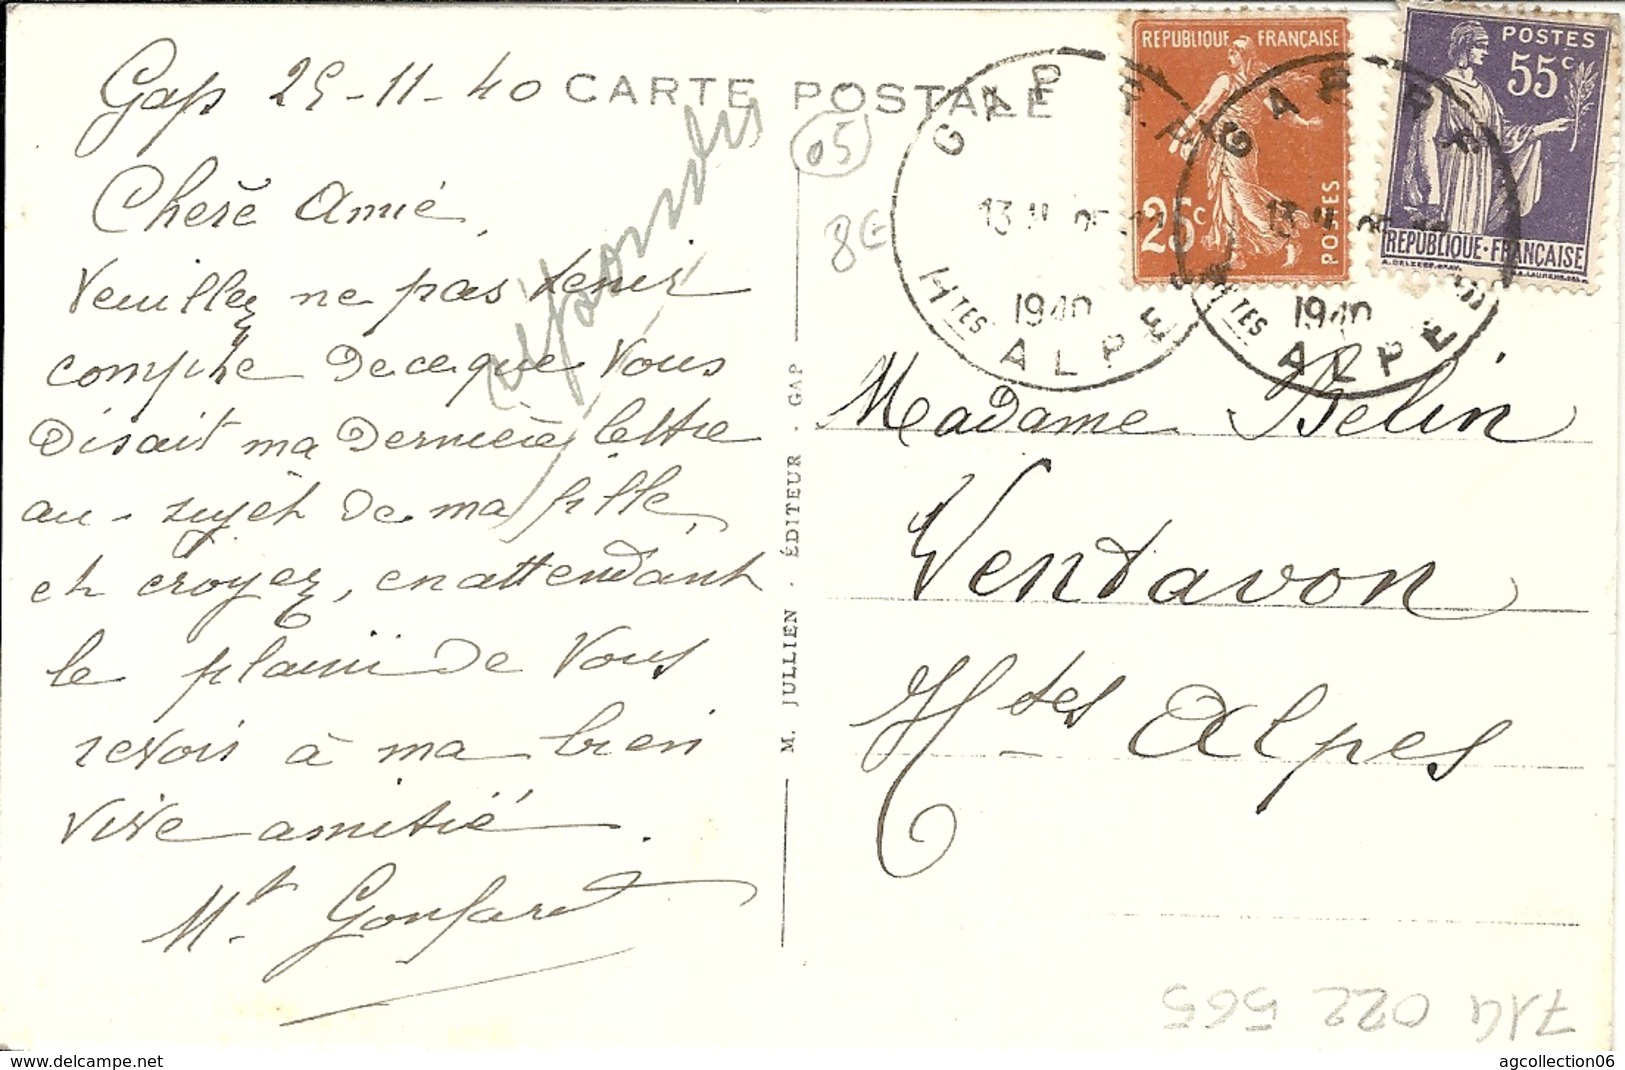 Gap 25-11-40
CARTE POSTALE
Cherè Amie,
Veuillez ne pas tenir
compte de ce que Vous
Disait ma Dernière lettre
au sujet de ma fille,
et croyez, en attendant
le plaisir de Vous
revoir à ma bien
Vive amitié.
Mt Gonfard
répondu
05
8€
M. JULLIEN . ÉDITEUR . GAP
REPUBLIQUE FRANÇAISE
25c
POSTES
POSTES
55c
REPUBLIQUE·FRANÇAISE
GAP R.P.
13 H
1940
HTES ALPES
GAP R.P.
13 H
1940
HTES ALPES
Madame Belin
Ventavon
Htes Alpes
714 022 565
My eBay store name on
agcollection06